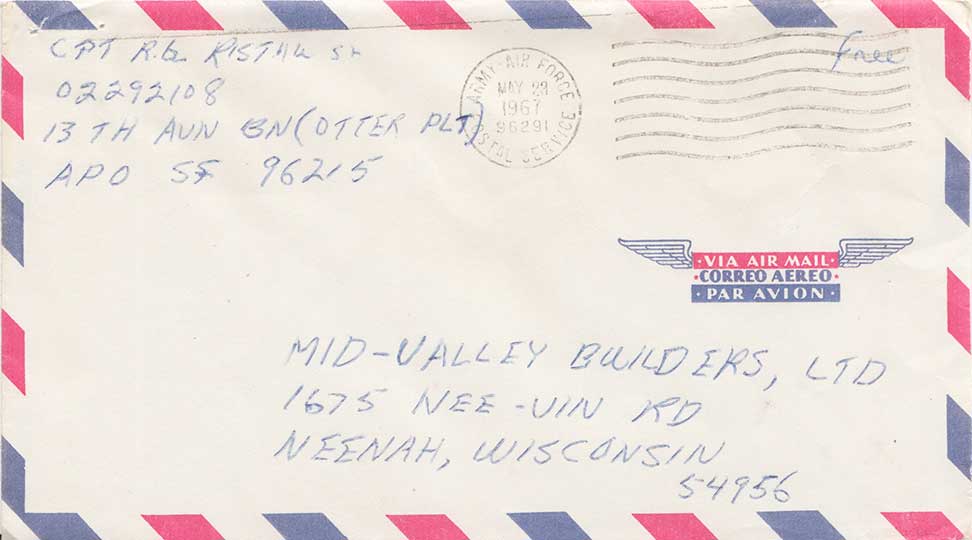 CPT R.G. RISTAU SR
02292108
13 TH AVN BN (OTTER PLT)
APO SF 96215
ARMY - AIR FORCE
POSTAL SERVICE
MAY 23
1967
96291
Free
VIA AIR MAIL
CORREO AEREO
PAR AVION
MID-VALLEY BUILDERS, LTD
1675 NEE-VIN RD
NEENAH, WISCONSIN
54956